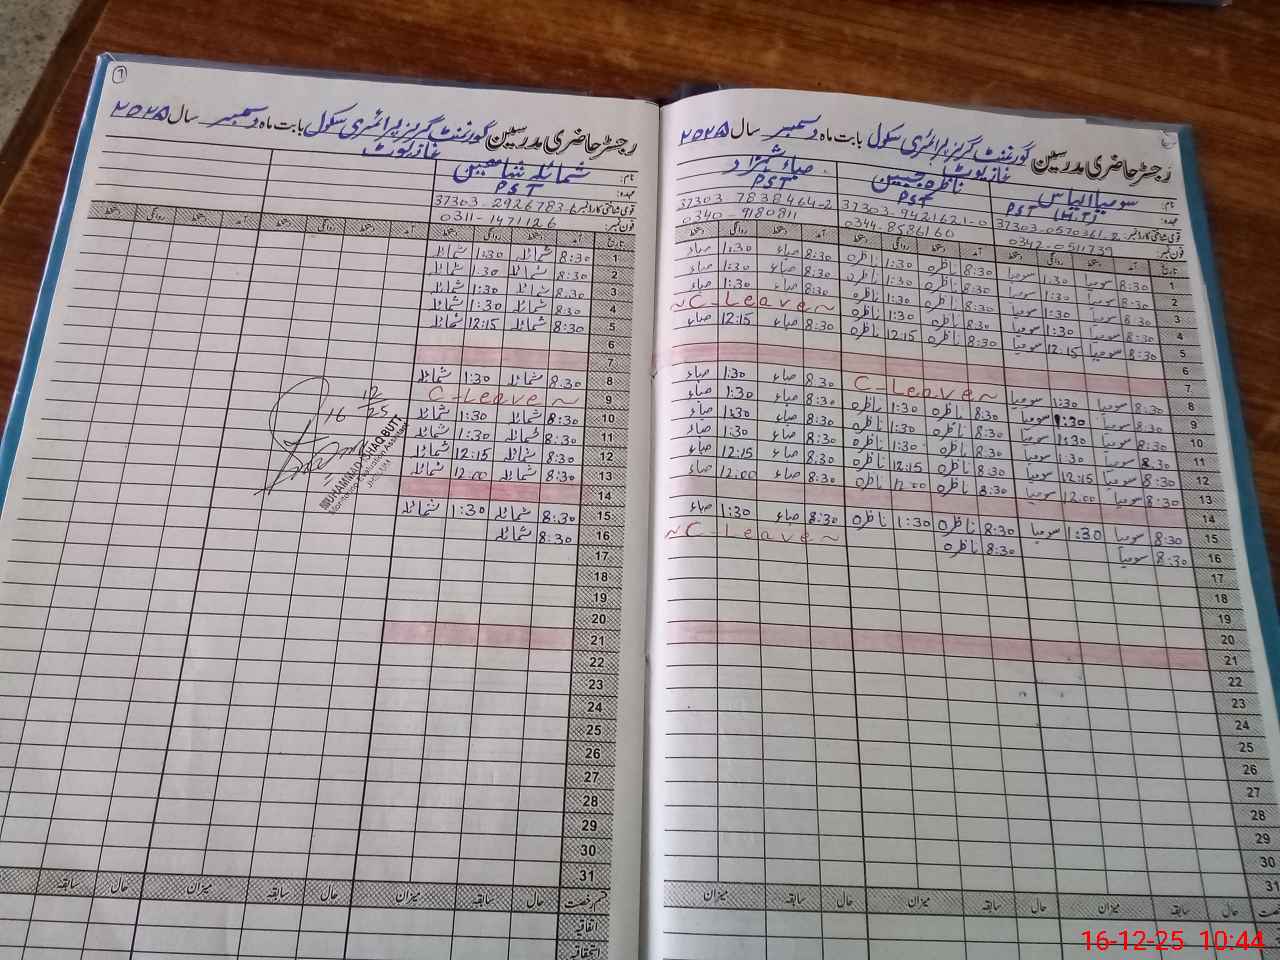 رجسٹر حاضری مدرسین گورنمنٹ گرلز پرائمری سکول بابت ماہ دسمبر سال ۲۰۲۵
نام: سومیا الیاس ناظرہ جبین صباء شہزاد
عہدہ: PST (H.T) PST PST
قومی شناختی کارڈ نمبر: 37303-0570361-2 37303-9421621-0 37303 7838464-2
فون نمبر: 0342-0511739 0344-8586160 0340-9180811
تاریخ آمد دستخط روانگی دستخط آمد دستخط روانگی دستخط آمد دستخط روانگی دستخط
1 8:30 سومیا 1:30 سومیا 8:30 ناظرہ 1:30 ناظرہ 8:30 صباء 1:30 صباء
2 8:30 سومیا 1:30 سومیا 8:30 ناظرہ 1:30 ناظرہ 8:30 صباء 1:30 صباء
3 8:30 سومیا 1:30 سومیا 8:30 ناظرہ 1:30 ناظرہ 8:30 صباء 1:30 صباء
4 8:30 سومیا 1:30 سومیا 8:30 ناظرہ 1:30 ناظرہ ~C-Leave~
5 8:30 سومیا 12:15 سومیا 8:30 ناظرہ 12:15 ناظرہ 8:30 صباء 12:15 صباء
6
7
8 8:30 سومیا 1:30 سومیا C-Leave~ 8:30 صباء 1:30 صباء
9 8:30 سومیا 1:30 سومیا 8:30 ناظرہ 1:30 ناظرہ 8:30 صباء 1:30 صباء
10 8:30 سومیا 1:30 سومیا 8:30 ناظرہ 1:30 ناظرہ 8:30 صباء 1:30 صباء
11 8:30 سومیا 1:30 سومیا 8:30 ناظرہ 1:30 ناظرہ 8:30 صباء 1:30 صباء
12 8:30 سومیا 12:15 سومیا 8:30 ناظرہ 12:15 ناظرہ 8:30 صباء 12:15 صباء
13 8:30 سومیا 12:00 سومیا 8:30 ناظرہ 12:00 ناظرہ 8:30 صباء 12:00 صباء
14
15 8:30 سومیا 1:30 سومیا 8:30 ناظرہ 1:30 ناظرہ 8:30 صباء 1:30 صباء
16 8:30 سومیا 8:30 ناظرہ ~C-Leave~
17
18
19
20
21
22
23
24
25
26
27
28
29
30
31
حال سابقہ میزان حال سابقہ میزان حال سابقہ میزان
رجسٹر حاضری مدرسین گورنمنٹ گرلز پرائمری سکول بابت ماہ دسمبر سال ۲۰۲۵
نام: شمائلہ شاہین
عہدہ: PST
قومی شناختی کارڈ نمبر: 37303-2926783-6
فون نمبر: 0311-1471126
تاریخ آمد دستخط روانگی دستخط آمد دستخط روانگی دستخط آمد دستخط روانگی دستخط
1 8:30 شمائلہ 1:30 شمائلہ
2 8:30 شمائلہ 1:30 شمائلہ
3 8:30 شمائلہ 1:30 شمائلہ
4 8:30 شمائلہ 1:30 شمائلہ
5 8:30 شمائلہ 12:15 شمائلہ
6
7
8 8:30 شمائلہ 1:30 شمائلہ
9 C-Leave~
10 8:30 شمائلہ 1:30 شمائلہ
11 8:30 شمائلہ 1:30 شمائلہ
12 8:30 شمائلہ 12:15 شمائلہ
13 8:30 شمائلہ 12:00 شمائلہ
14
15 8:30 شمائلہ 1:30 شمائلہ
16 8:30 شمائلہ
17
18
19
20
21
22
23
24
25
26
27
28
29
30
31
قسم رخصت حال سابقہ میزان حال سابقہ میزان حال سابقہ
اتفاقیہ
استحقاقیہ
16 12/25
MUHAMMAD ISHAQ BUTT
16-12-25 10:44